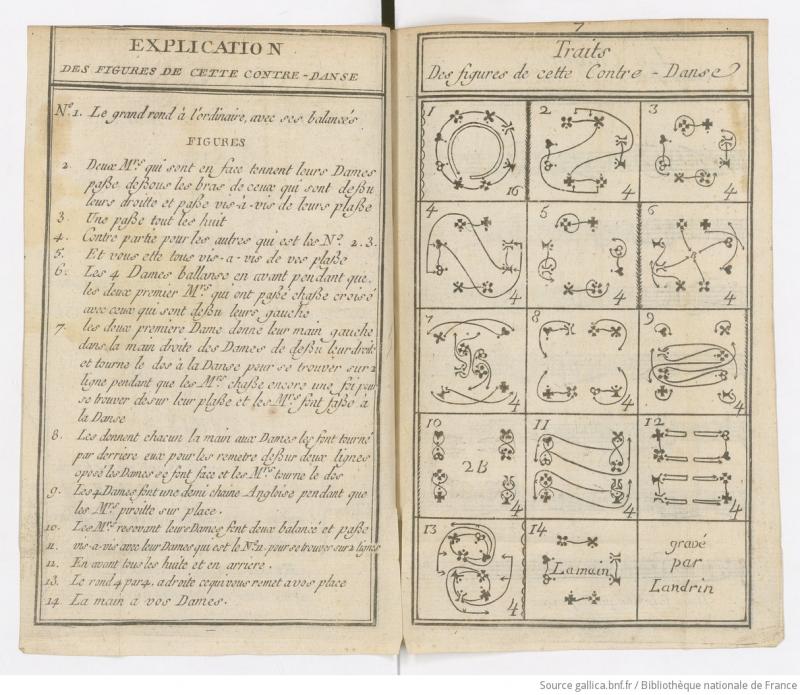 EXPLICATION
DES FIGURES DE CETTE CONTRE-DANSE
No. 1. Le grand rond à l'ordinaire, avec ses balancés
FIGURES
2. Deux Mrs qui sont en face tennent leurs Dames
paße deßous les bras de ceux qui sont deßu
leurs droitte et paße vis-à-vis de leurs plaße
3. Une paße tout les huit
4. Contre partie pour les autres qui est les No. 2.3.
5. Et vous ette tous vis-a-vis de vos plaße
6. Les 4 Dames ballanse en avant pendant que
les deux premier Mrs qui ont paßé chaße croisé
avec ceux qui sont deßu leurs gauche.
7. les deux premiere Dame donne leur main gauche
dans la main droite des Dames de deßu leur droit
et tourne le dos à la Danse pour se trouver sur 2
ligne pendant que les Mrs chaße encore une foi pour
se trouver desur leur plaße et les Mrs font faße à
la Danse
8. Les donnent chacun la main aux Dames les font tourné
par derriere eux pour les remetre deßur deux lignes
oposé les Dames se font face et les Mrs tourne le dos
9. Les 4 Dames font une demi chaine Angloise pendant que
les Mrs piroitte sur place.
10. Les Mrs resevant leurs Dames font deux balancé et paße
11. vis-a-vis avec leur Dames qui est le No 11. pour se trouver sur 2 lignes
12. En avant tous les huite et en arriere.
13. Le rond 4 par 4. a droite ce qui vous remet a vos place
14. La main à vos Dames.
7
Traits
Des figures de cette Contre-Danse
1
16
2
4
3
4
4
4
5
4
6
4
7
4
8
4
9
4
10
2B
4
11
4
12
4
13
4
14
La main
gravé
par
Landrin
Source gallica.bnf.fr / Bibliothèque nationale de France